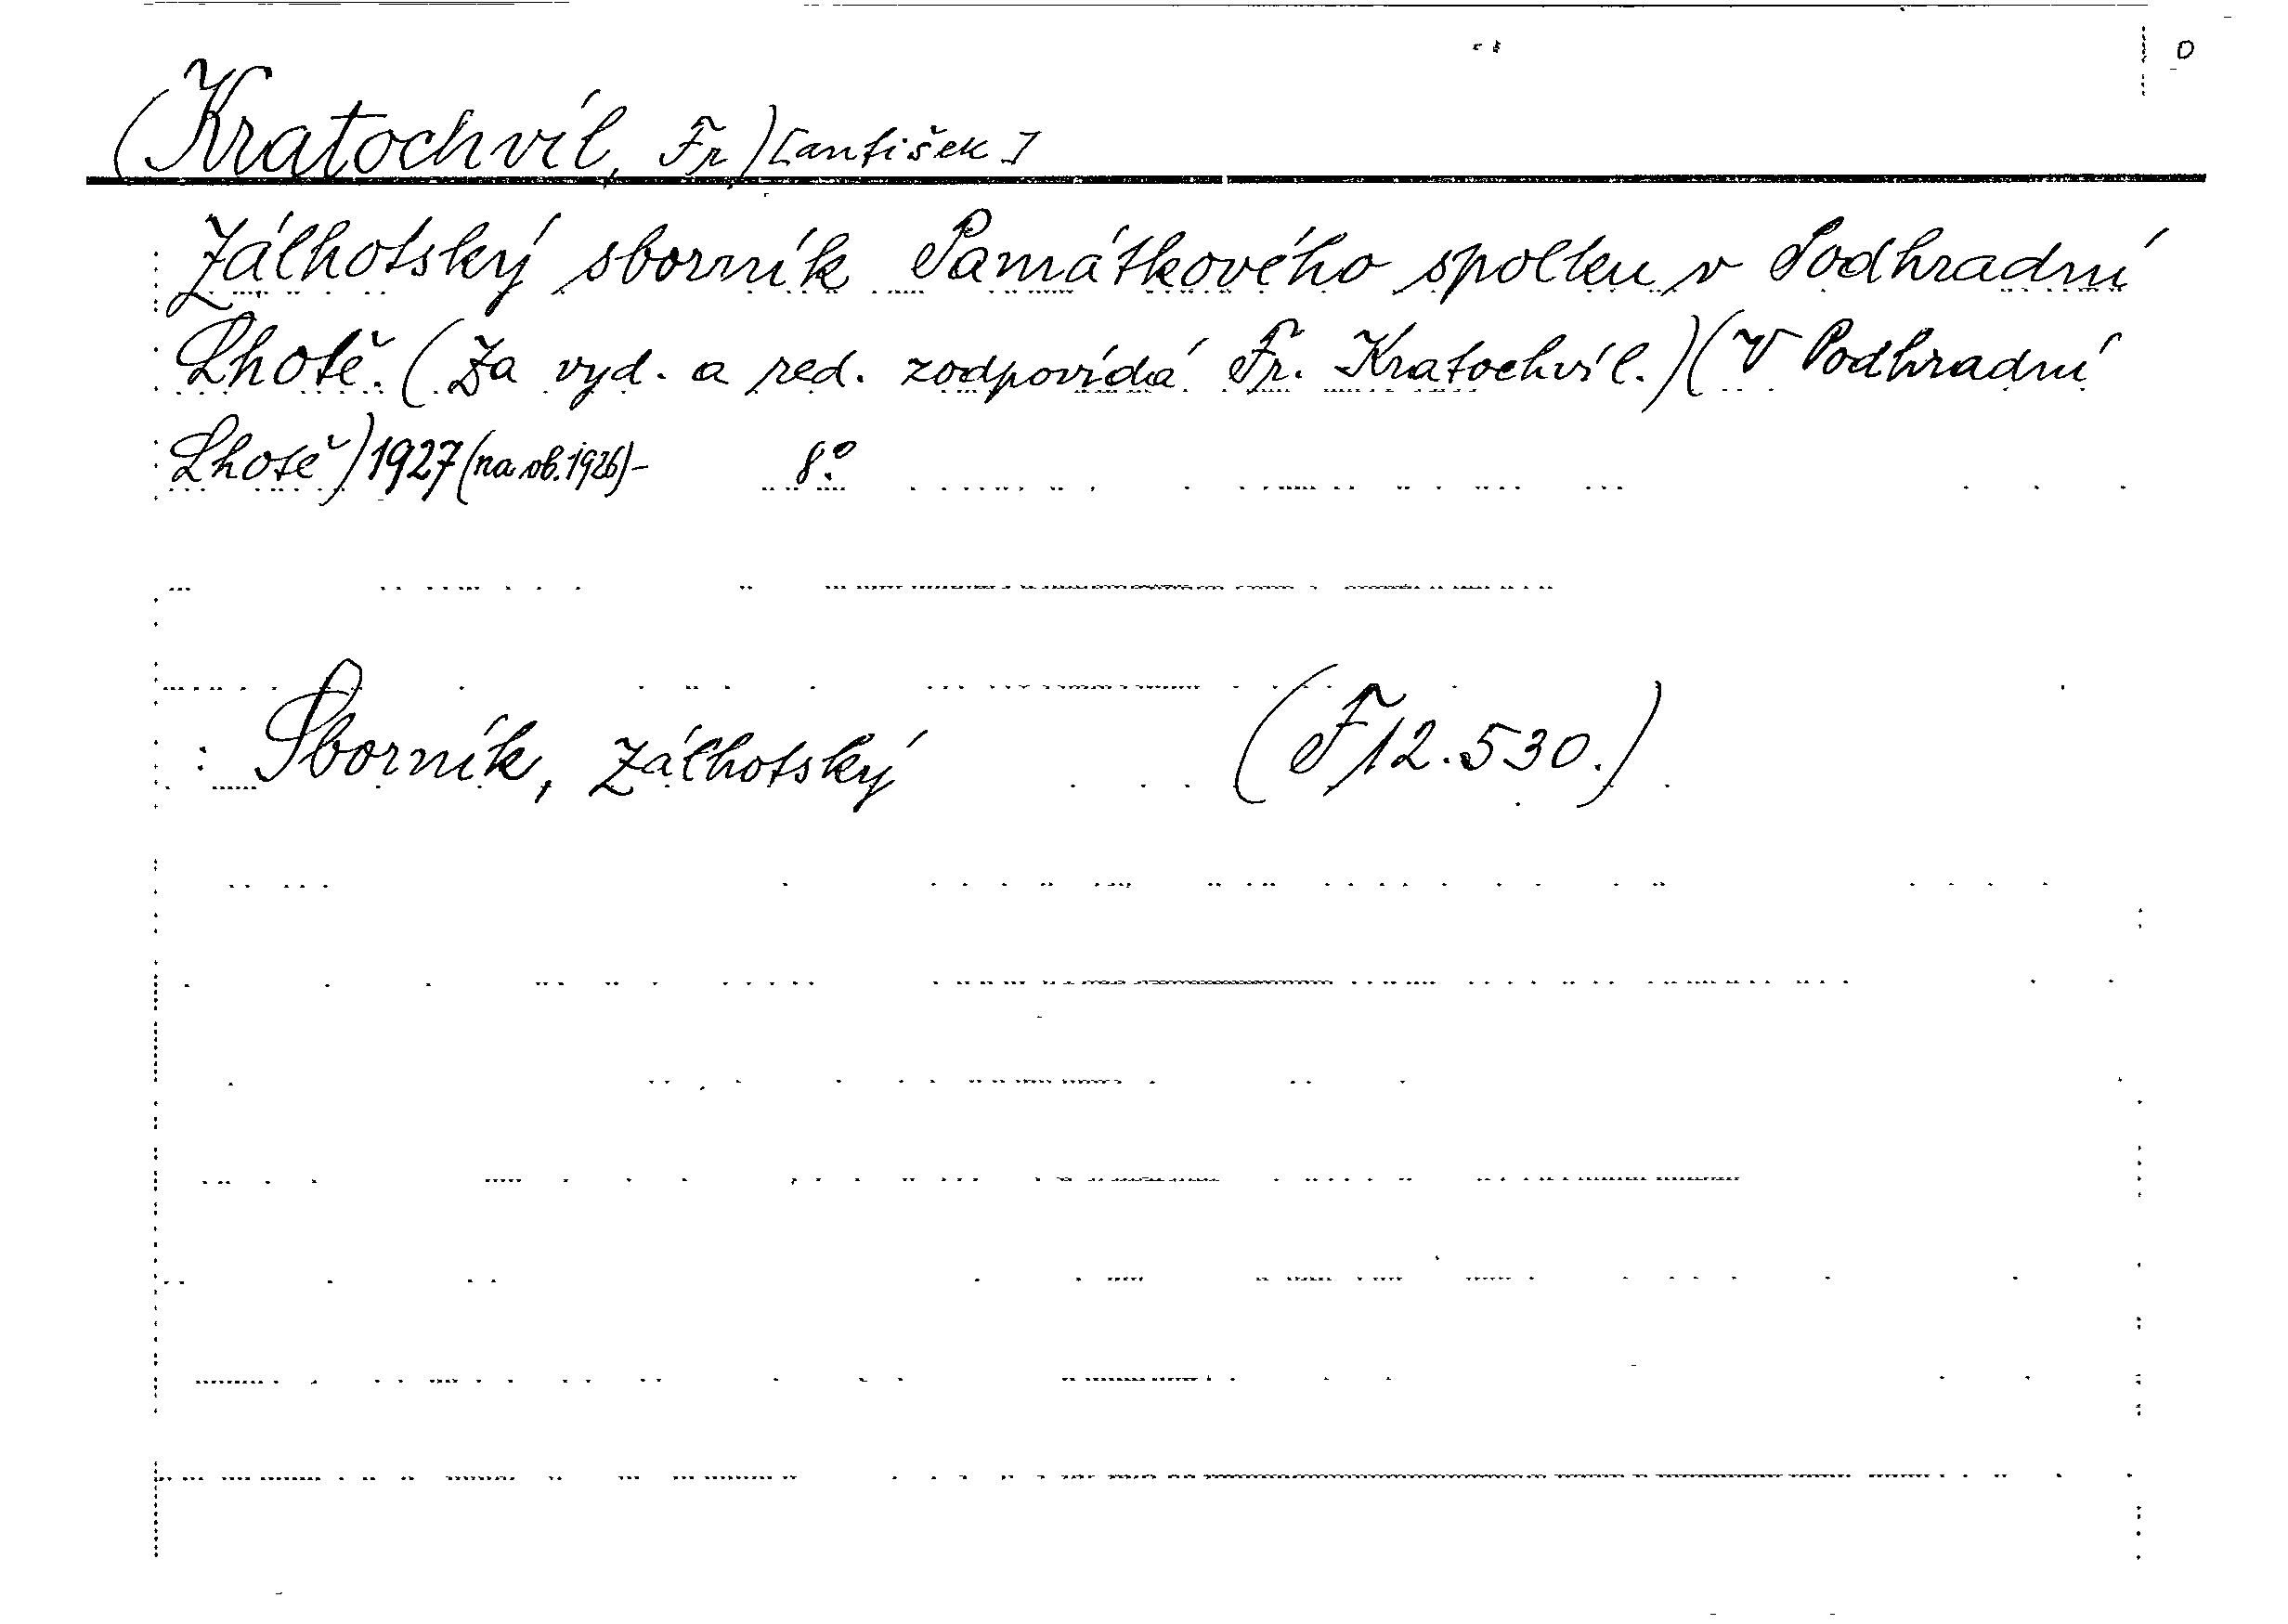 (Kratochvíl, Fr.)[antišek]
Zálhotský sborník Památkového spolku v Podhradní
Lhotě. (Za vyd. a red. zodpovídá Fr. Kratochvíl.)(V Podhradní
Lhotě) 1927 (na ob. 1926)- 8°.
Sborník, zálhotský (F 12.530.)